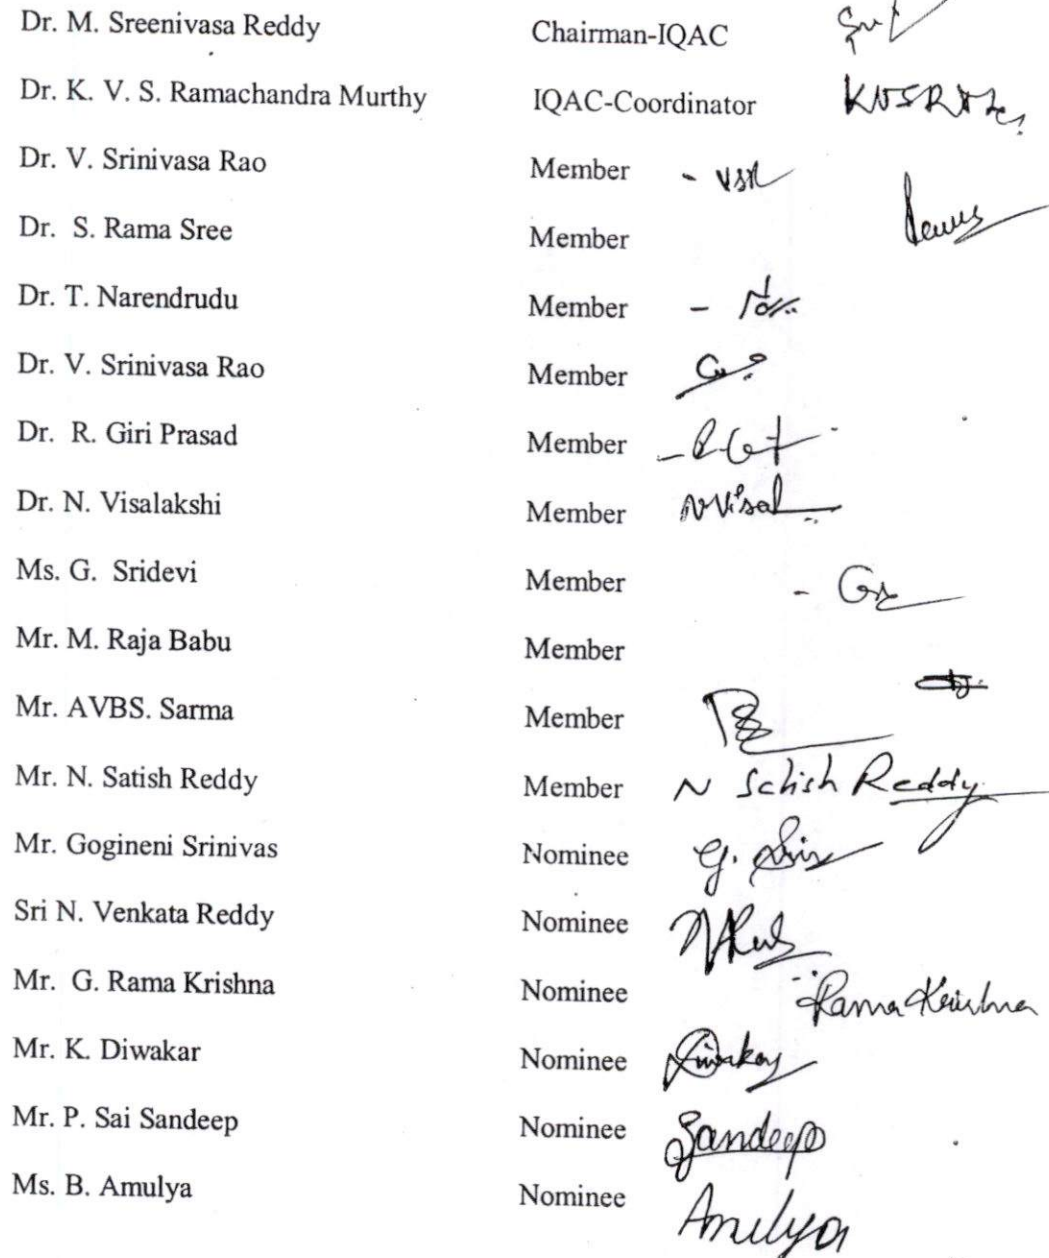 Dr. M. Sreenivasa Reddy Chairman-IQAC
Dr. K. V. S. Ramachandra Murthy IQAC-Coordinator
Dr. V. Srinivasa Rao Member - VSR
Dr. S. Rama Sree Member
Dr. T. Narendrudu Member -
Dr. V. Srinivasa Rao Member
Dr. R. Giri Prasad Member
Dr. N. Visalakshi Member N Visal
Ms. G. Sridevi Member -
Mr. M. Raja Babu Member
Mr. AVBS. Sarma Member
Mr. N. Satish Reddy Member N Satish Reddy
Mr. Gogineni Srinivas Nominee
Sri N. Venkata Reddy Nominee
Mr. G. Rama Krishna Nominee Rama Krishna
Mr. K. Diwakar Nominee Diwakar
Mr. P. Sai Sandeep Nominee Sandeep
Ms. B. Amulya Nominee Amulya